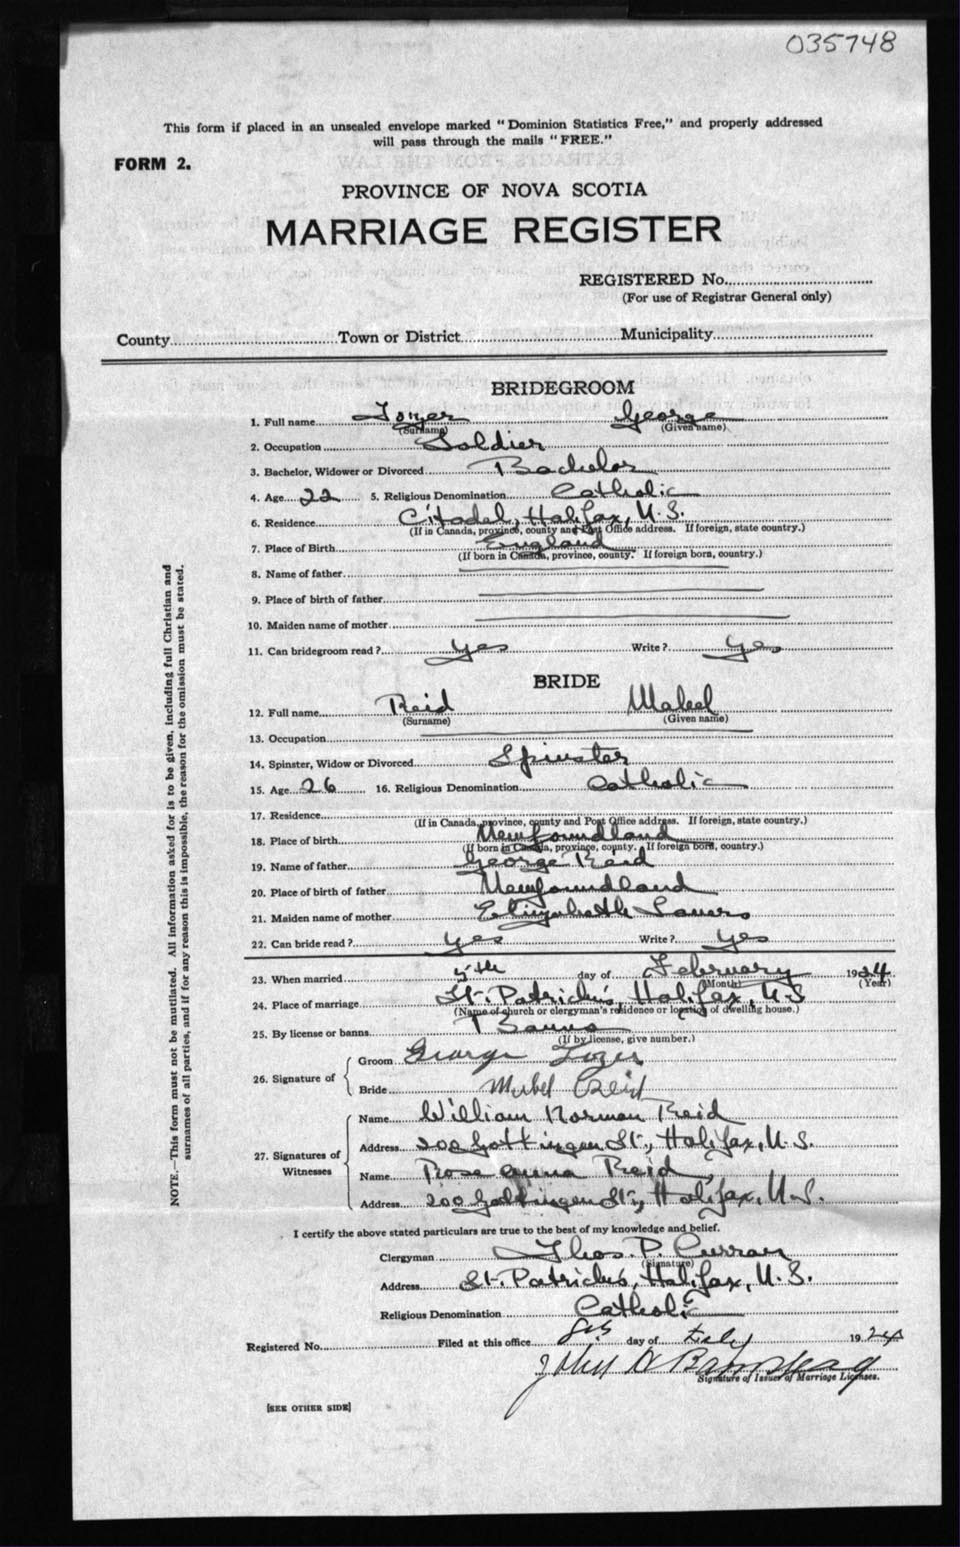 035748
This form if placed in an unsealed envelope marked "Dominion Statistics Free," and properly addressed
will pass through the mails "FREE."
FORM 2.
PROVINCE OF NOVA SCOTIA
MARRIAGE REGISTER
REGISTERED No.
(For use of Registrar General only)
County Town or District Municipality
BRIDEGROOM
1. Full name Tozer George
(Surname) (Given name)
2. Occupation Soldier
3. Bachelor, Widower or Divorced Bachelor
4. Age 22 5. Religious Denomination Catholic
6. Residence Citadel, Halifax, N.S.
(If in Canada, province, county and Post Office address. If foreign, state country.)
7. Place of Birth England
(If born in Canada, province, county. If foreign born, country.)
8. Name of father
9. Place of birth of father
10. Maiden name of mother
11. Can bridegroom read? Yes Write? Yes
BRIDE
12. Full name Reid Mabel
(Surname) (Given name)
13. Occupation
14. Spinster, Widow or Divorced Spinster
15. Age 26 16. Religious Denomination Catholic
17. Residence
(If in Canada, province, county and Post Office address. If foreign, state country.)
18. Place of birth Newfoundland
(If born in Canada, province, county. If foreign born, country.)
19. Name of father George Reid
20. Place of birth of father Newfoundland
21. Maiden name of mother Elizabeth
22. Can bride read? Yes Write? Yes
23. When married 5th day of February 1924
(Month) (Year)
24. Place of marriage St. Patrick's, Halifax, N.S
(Name of church or clergyman's residence or location of dwelling house.)
25. By license or banns Banns
(If by license, give number.)
26. Signature of Groom George Tozer
Bride Mabel Reid
27. Signatures of Witnesses Name William Norman Reid
Address 200 Gottingen St., Halifax, N.S.
Name Rose Anna Reid
Address 200 Gottingen St., Halifax, N.S.
I certify the above stated particulars are true to the best of my knowledge and belief.
Clergyman Thos. P. Curran
(Signature)
Address St. Patrick's, Halifax, N.S.
Religious Denomination Catholic
Registered No. Filed at this office 8th day of Feby 1924
John
Signature of Issuer of Marriage Licenses.
[SEE OTHER SIDE]
NOTE.—This form must not be mutilated. All information asked for is to be given, including full Christian and
surnames of all parties, and if for any reason this is impossible, the reason for the omission must be stated.